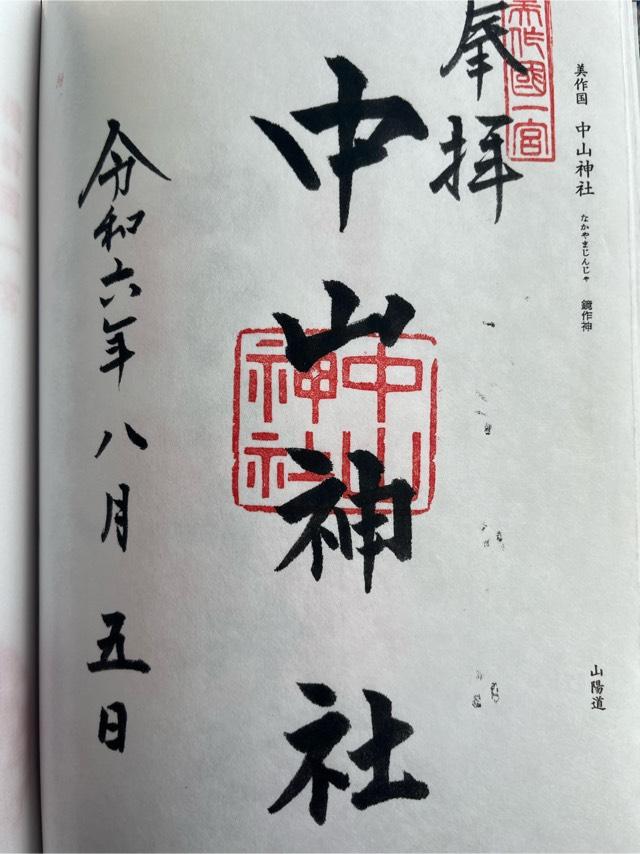 美作国 中山神社 なかやまじんじゃ 鏡作神
山陽道
美作國一宮
奉拝
中山神社
中山神社
令和六年 八月 五日